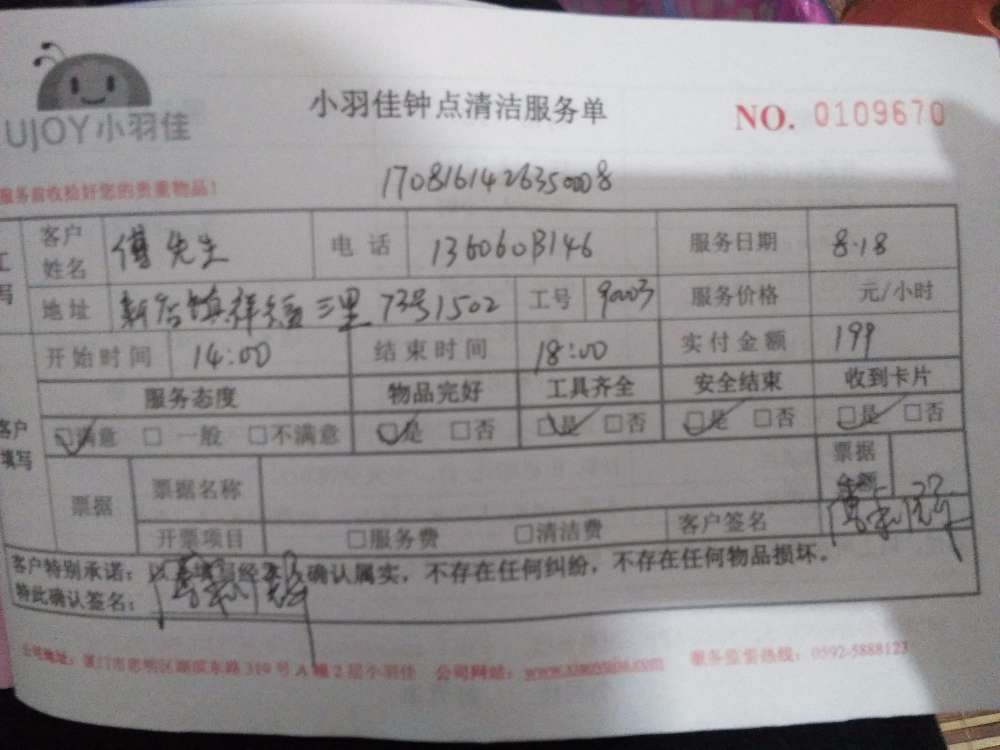 UJOY小羽佳
小羽佳钟点清洁服务单
NO. 0109670
服务前收检好您的贵重物品!
1708161426350008
客户姓名 傅先生 电话 服务日期 8.18
地址 新店镇祥 三里 73号1502 工号 90003 服务价格 元/小时
开始时间 14:00 结束时间 18:00 实付金额 199
服务态度 物品完好 工具齐全 安全结束 收到卡片
客户填写
☑满意 □一般 □不满意 ☑是 □否 ☑是 □否 ☑是 □否 ☑是 □否
票据 票据名称 票据
开票项目 □服务费 □清洁费 客户签名
客户特别承诺: 确认属实,不存在任何纠纷,不存在任何物品损坏。
特此确认签名:
公司地址:厦门市思明区湖滨东路319号A幢2层小羽佳 公司网站: 服务监督热线:0592-5888123